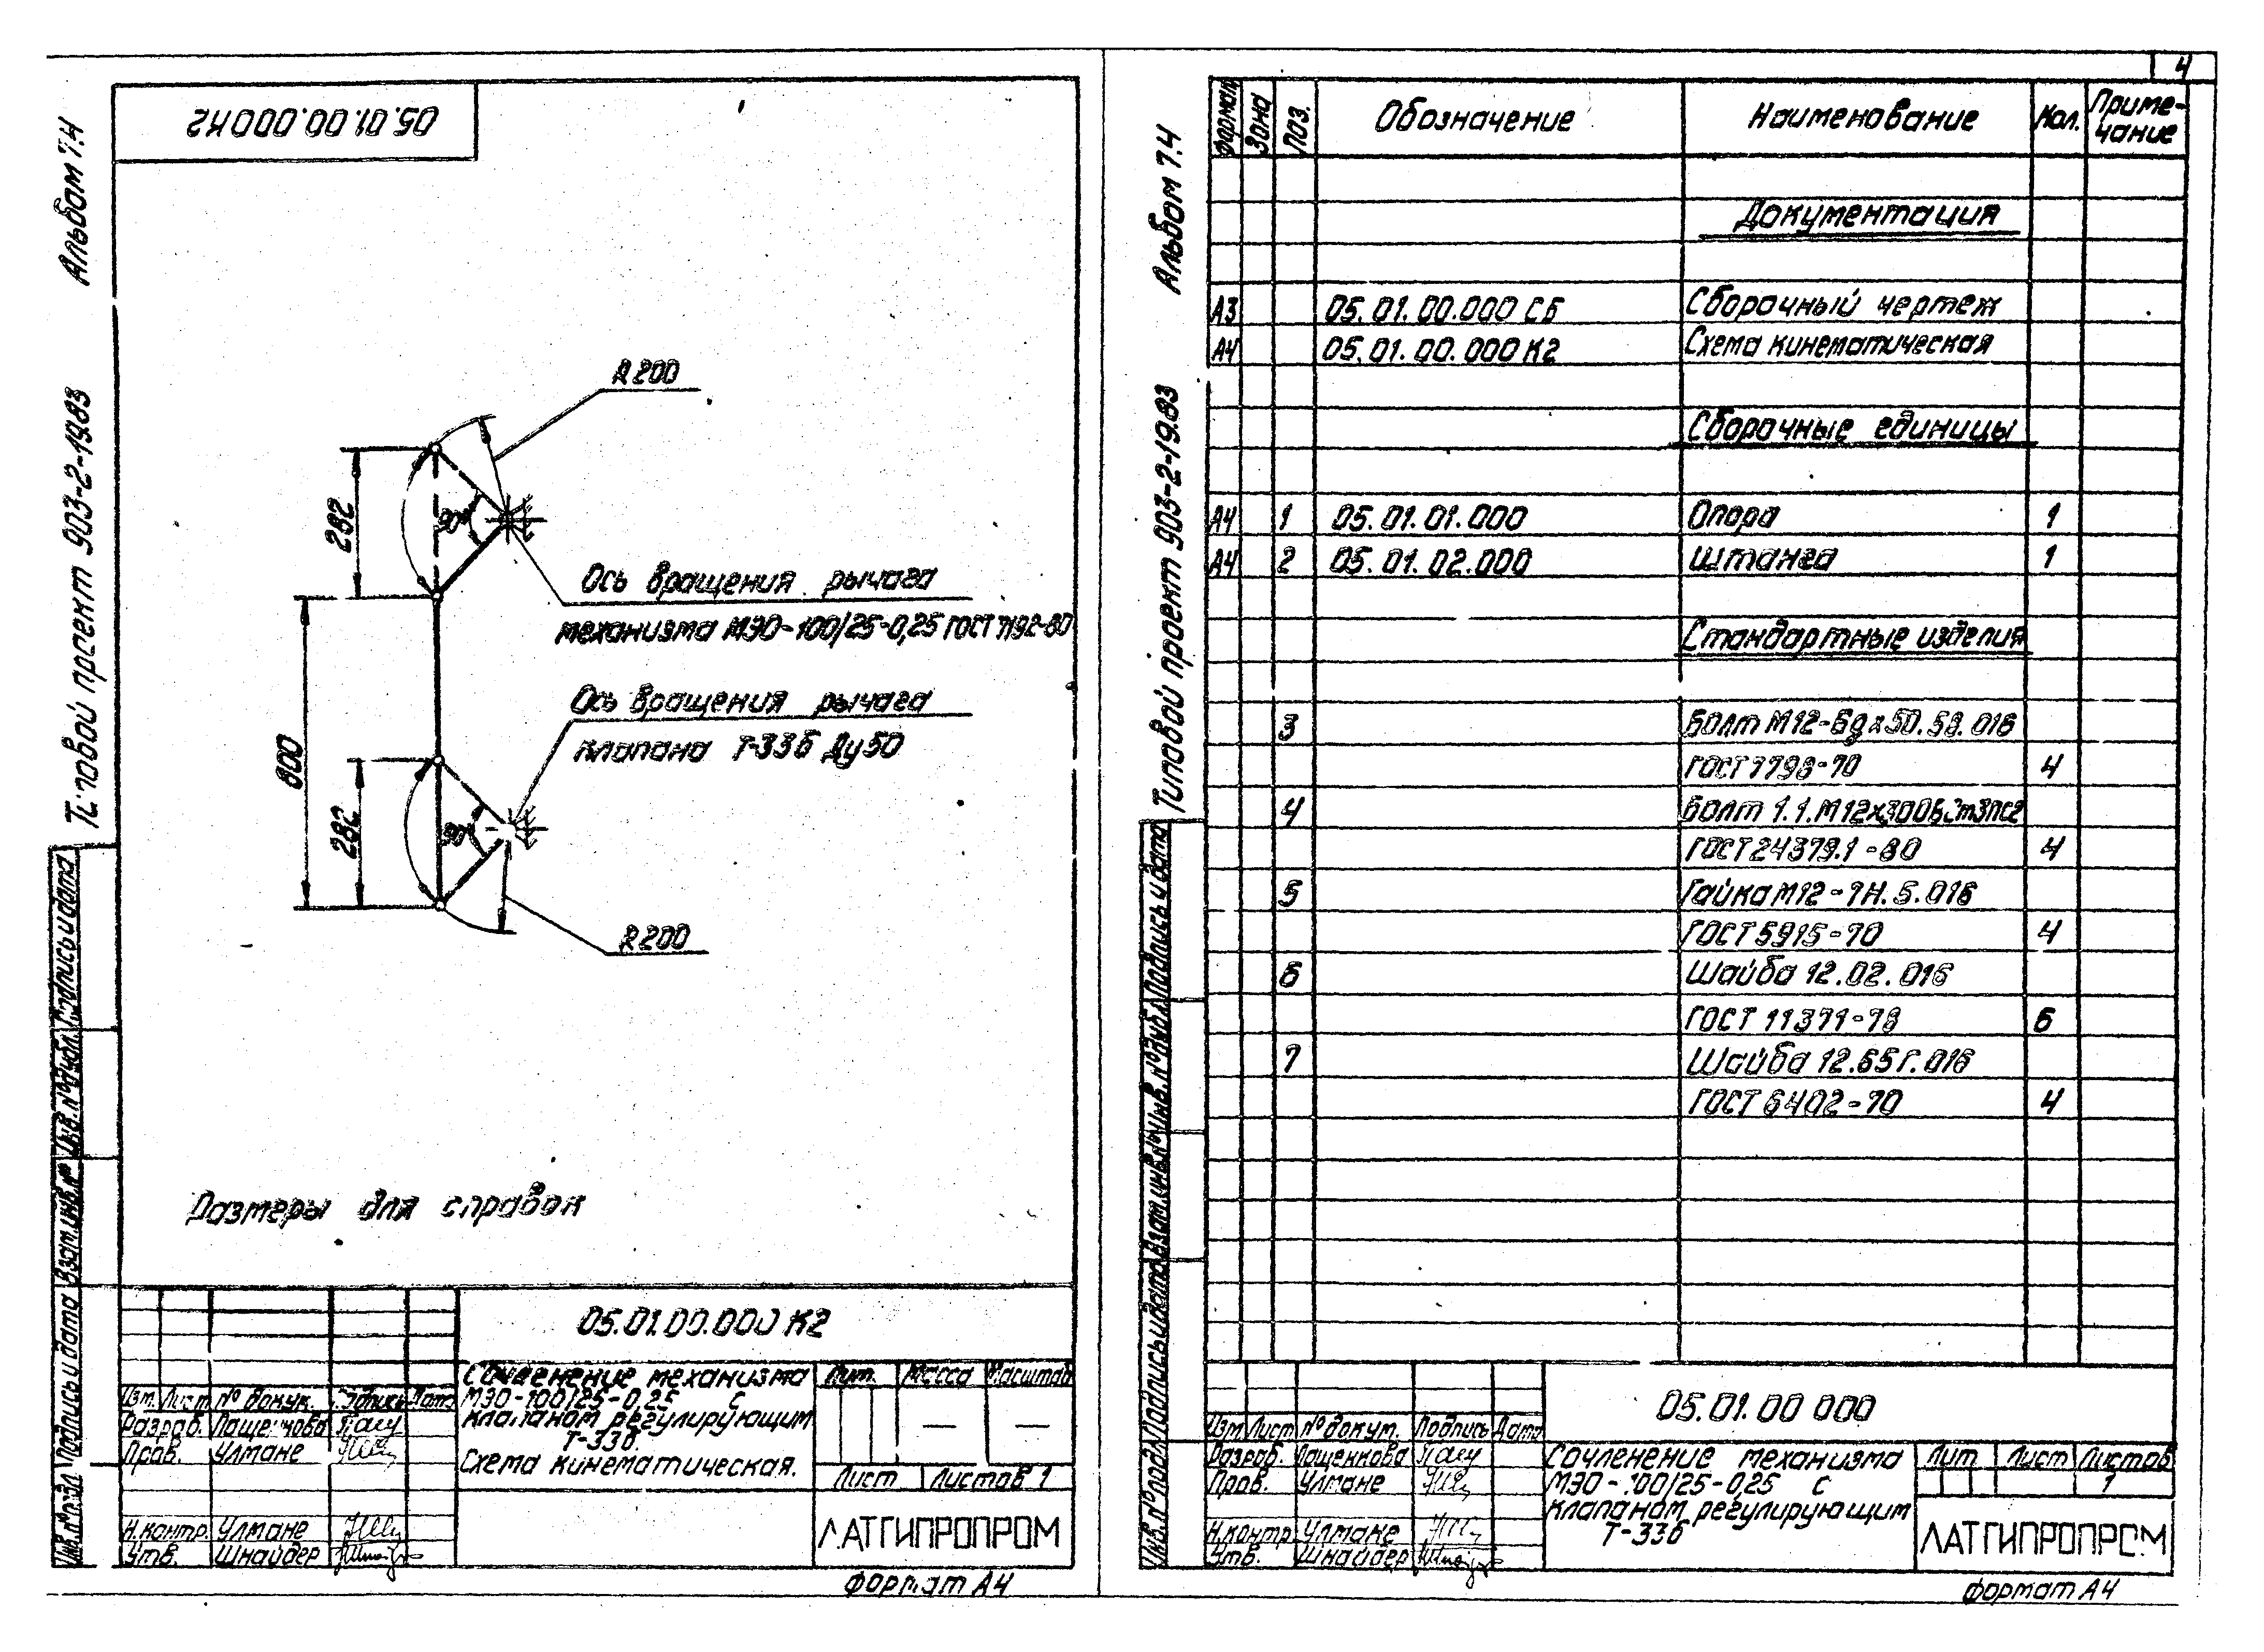 4
05.01.00.000 К2
Альбом 7.4
Типовой проект 903-2-19.83
R200
282
90°
Ось вращения рычага
механизма МЭО-100/25-0,25 ГОСТ 7192-80
Ось вращения рычага
клапана Т-33б Ду50
800
282
90°
R200
Размеры для справок
Подпись и дата
Инв.№ дубл.
Взам.инв.№
Подпись и дата
Инв.№ подл
05.01.00.000 К2
Сочленение механизма
МЭО-100/25-0,25 с
клапаном регулирующим
Т-33б.
Схема кинематическая.
Лит. Масса Масштаб
— —
Лист Листов 1
Изм. Лист № докум. Подпись Дата
Разраб. Пащенкова
Пров. Улмане
Н.контр. Улмане
Утв. Шнайдер
ЛАТГИПРОПРОМ
формат А4
Альбом 7.4
Типовой проект 903-2-19.83
Формат Зона Поз. Обозначение Наименование Кол. Приме-
чание
Документация
А3 05.01.00.000 СБ Сборочный чертеж
А4 05.01.00.000 К2 Схема кинематическая
Сборочные единицы
А4 1 05.01.01.000 Опора 1
А4 2 05.01.02.000 Штанга 1
Стандартные изделия
3 Болт М12-6gх50.58.016
ГОСТ 7798-70 4
4 Болт 1.1.М12х300
ГОСТ 24379.1-80 4
5 Гайка М12-7Н.5.016
ГОСТ 5915-70 4
6 Шайба 12.02.016
ГОСТ 11371-78 6
7 Шайба 12.65Г.016
ГОСТ 6402-70 4
Подпись и дата
Инв.№ дубл.
Взам.инв.№
Подпись и дата
Инв.№ подл
05.01.00 000
Изм. Лист № докум. Подпись Дата
Разраб. Пащенкова
Пров. Улмане
Н.контр Улмане
Утв. Шнайдер
Сочленение механизма
МЭО-100/25-0,25 с
клапаном регулирующим
Т-33б
Лит Лист Листов
1
ЛАТГИПРОПРОМ
формат А4